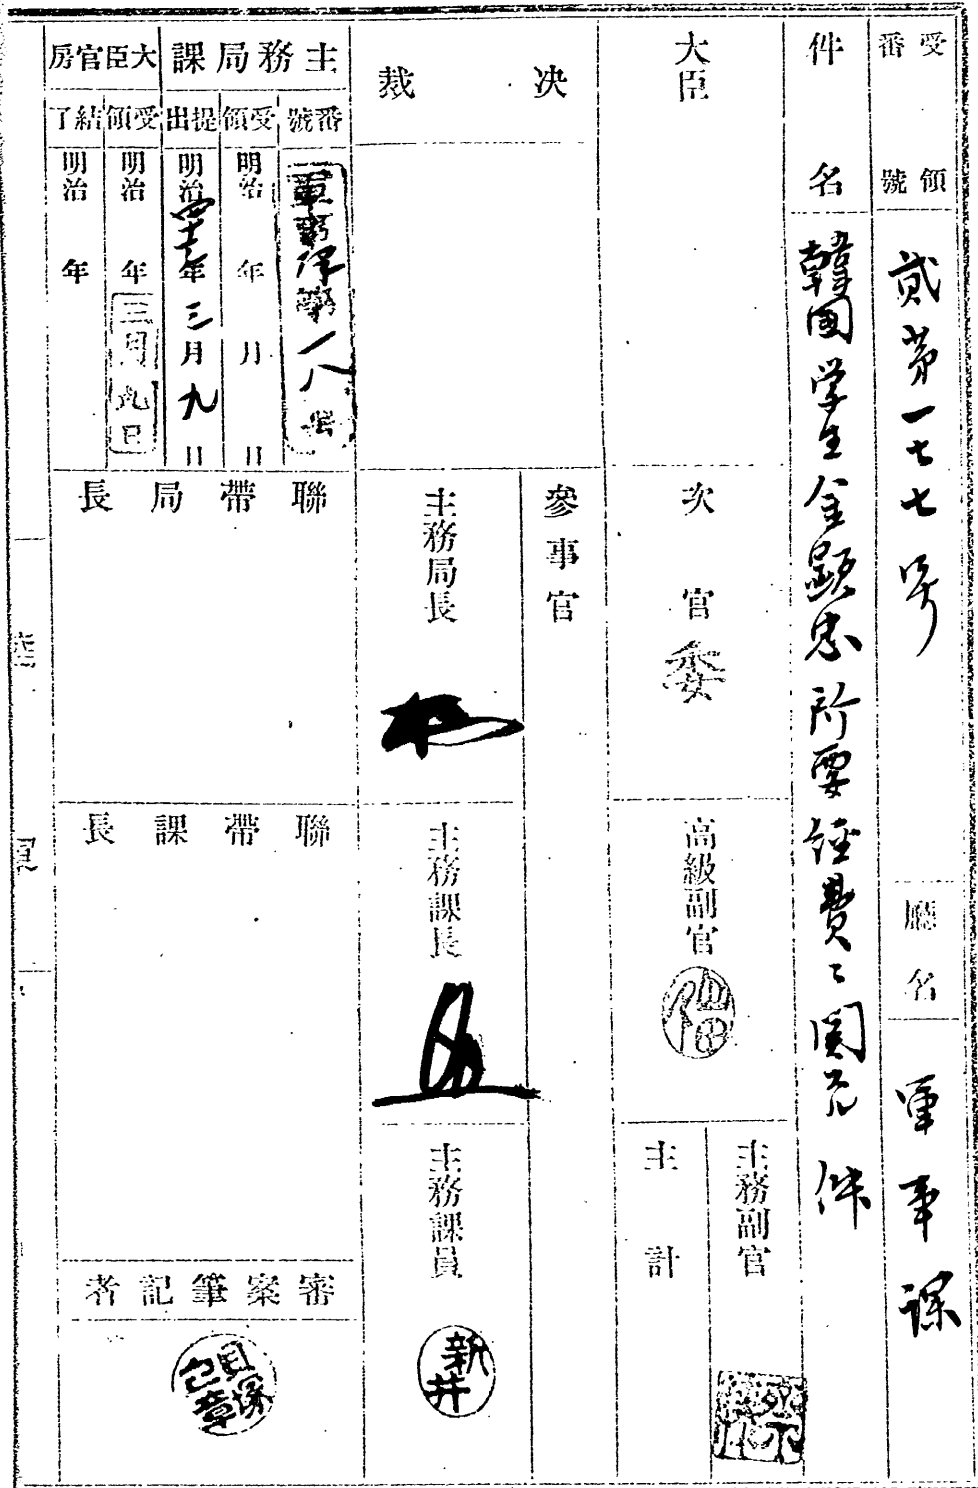 受領番號
貳第一七七号
廳名
軍事課
件名
韓国学生金顕忠所要経費ニ関スル件
大臣
次官
委
高級副官
主務副官
主計
決裁
參事官
主務局長
主務課長
主務課員
新井
主務局課
番號
軍事課第一八号
受領
明治 年 月 日
提出
明治四十一年三月九日
大臣官房
受領
明治 年三月九日
結了
明治 年
聯帶局長
聯帶課長
審案筆記者
貝塚
陸
軍